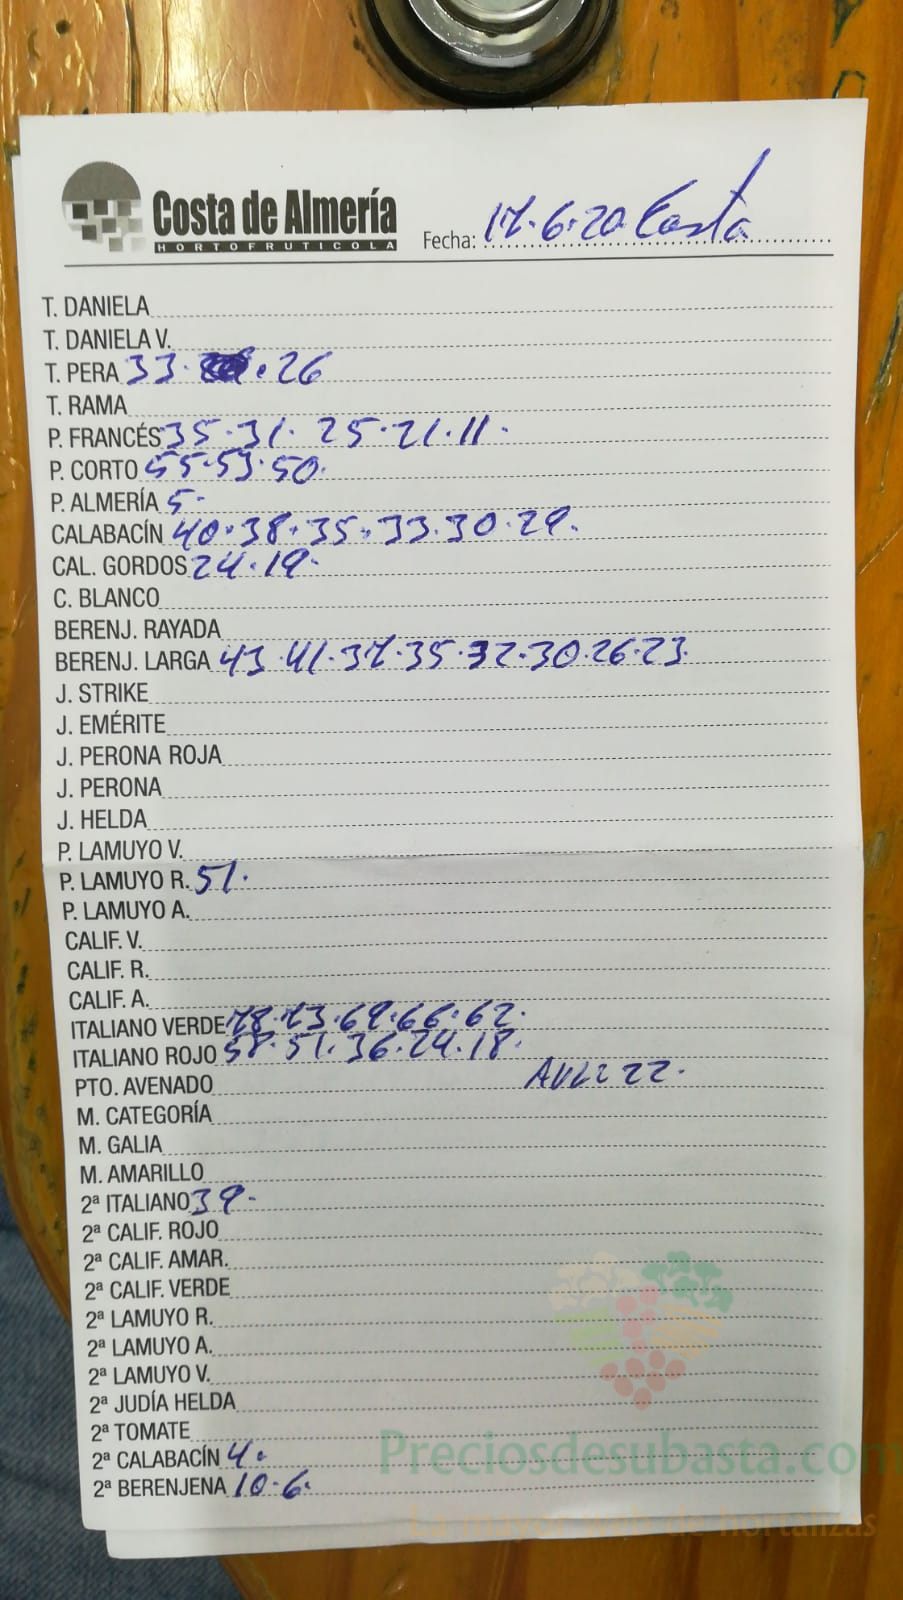 Costa de Almería
HORTOFRUTICOLA
Fecha: 17.6.20 Costa
T. DANIELA
T. DANIELA V.
T. PERA 33. . 26
T. RAMA
P. FRANCÉS 35.31. 25.21.11.
P. CORTO 55.53.50.
P. ALMERÍA 5.
CALABACÍN 40.38.35.33.30.29.
CAL. GORDOS 24.19.
C. BLANCO
BERENJ. RAYADA
BERENJ. LARGA 43.41.37.35.32.30.26.23.
J. STRIKE
J. EMÉRITE
J. PERONA ROJA
J. PERONA
J. HELDA
P. LAMUYO V.
P. LAMUYO R. 51.
P. LAMUYO A.
CALIF. V.
CALIF. R.
CALIF. A.
ITALIANO VERDE 78.73.69.66.62.
ITALIANO ROJO 58.51.36.24.18.
PTO. AVENADO 22.
M. CATEGORÍA
M. GALIA
M. AMARILLO
2ª ITALIANO 39.
2ª CALIF. ROJO
2ª CALIF. AMAR.
2ª CALIF. VERDE
2ª LAMUYO R.
2ª LAMUYO A.
2ª LAMUYO V.
2ª JUDÍA HELDA
2ª TOMATE
2ª CALABACÍN 4.
2ª BERENJENA 10.6.
Preciosdesubasta.com
La mayor web de hortalizas